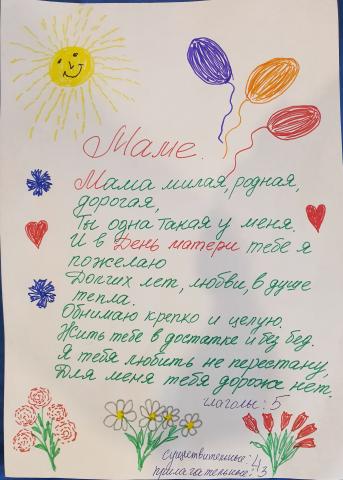 Маме.
Мама милая, родная,
дорогая,
Ты одна такая у меня.
И в День матери тебе я
пожелаю
Долгих лет, любви, в душе
тепла.
Обнимаю крепко и целую.
Жить тебе в достатке и без бед.
Я тебя любить не перестану,
Для меня тебя дороже нет.
глаголы: 5
существительные: 4
прилагательные: 3